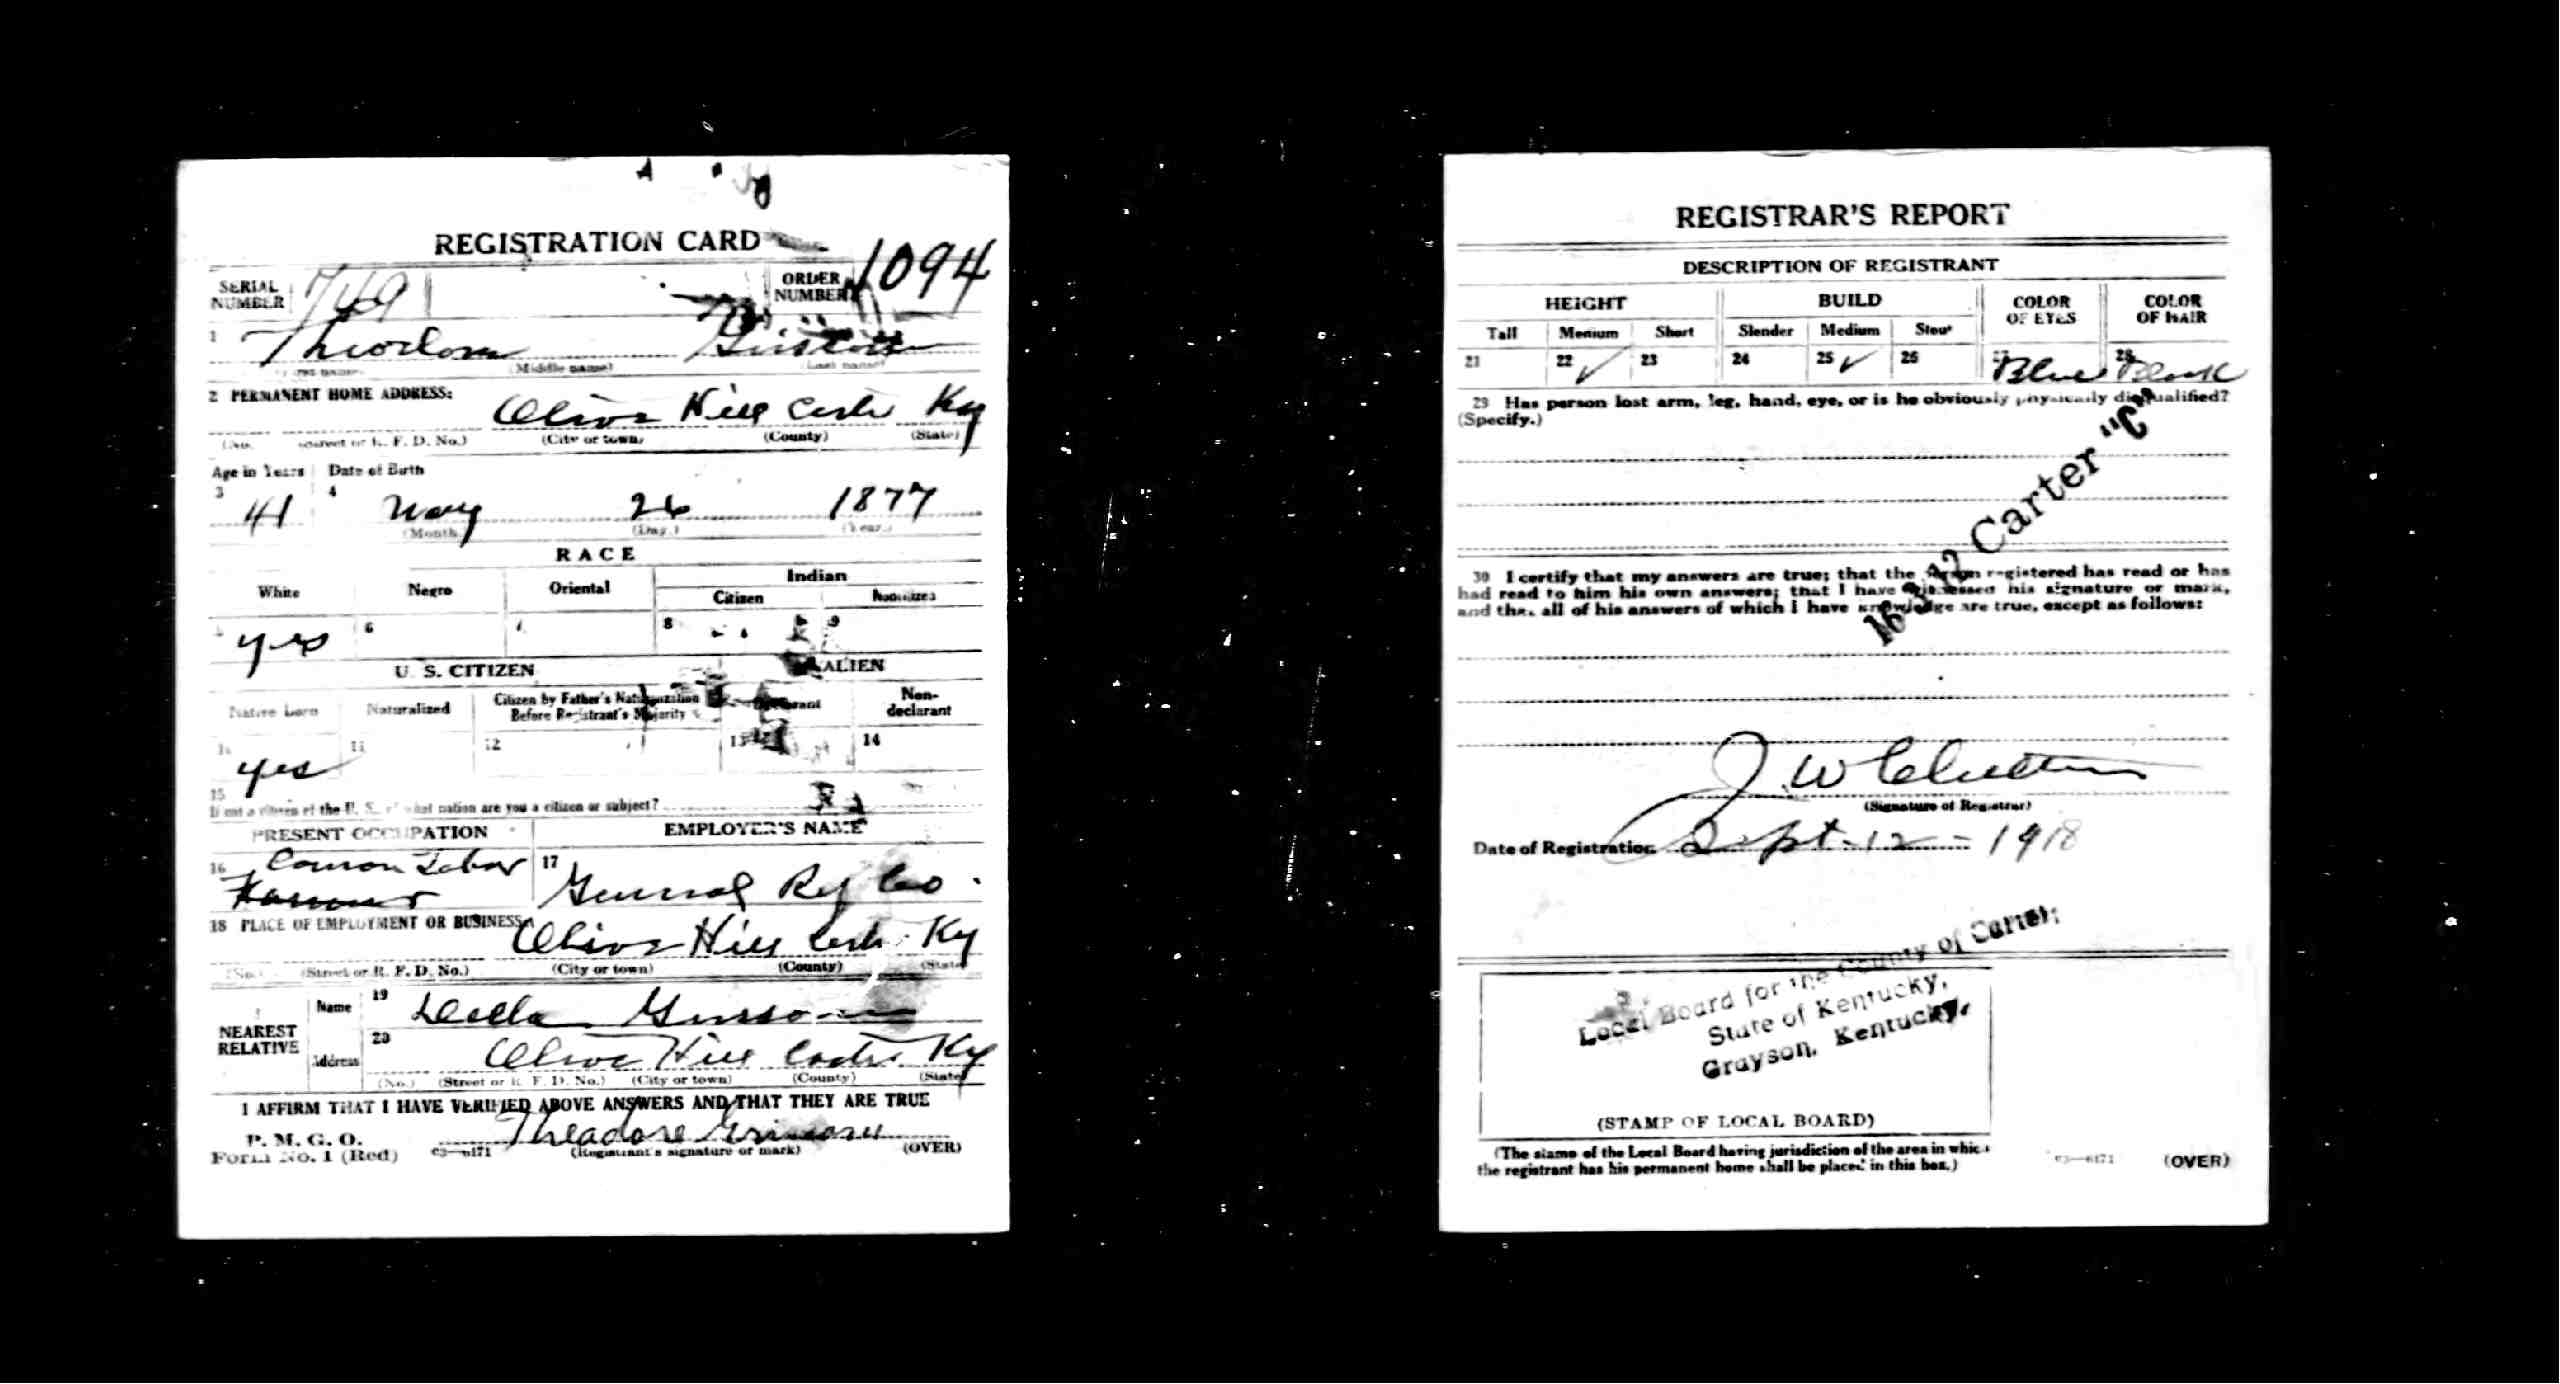 REGISTRATION CARD
SERIAL NUMBER 749 ORDER NUMBER 1094
1
(Middle name) (Last name)
2 PERMANENT HOME ADDRESS:
Olive Hill Carter Ky
(No.) (Street or R. F. D. No.) (City or town) (County) (State)
Age in Years Date of Birth
3 41 4 May 26 1877
(Month.) (Day.) (Year.)
RACE
White Negro Oriental Indian
Citizen Noncitizen
yes 6 7 8 9
U. S. CITIZEN ALIEN
Native Born Naturalized Citizen by Father's Naturalization Before Registrant's Majority Declarant Non-declarant
10 yes 11 12 13 14
15 If not a citizen of the U. S., of what nation are you a citizen or subject?
PRESENT OCCUPATION EMPLOYER'S NAME
16 Comon Labor 17 General Ref Co.
Farmer
18 PLACE OF EMPLOYMENT OR BUSINESS:
Olive Hill Carter Ky
(No.) (Street or R. F. D. No.) (City or town) (County) (State)
NEAREST RELATIVE
Name 19
Address 20 Olive Hill Carter Ky
(No.) (Street or R. F. D. No.) (City or town) (County) (State)
I AFFIRM THAT I HAVE VERIFIED ABOVE ANSWERS AND THAT THEY ARE TRUE
P. M. G. O.
Form No. 1 (Red) 03—6171 Theadore (Registrant's signature or mark) (OVER)
REGISTRAR'S REPORT
DESCRIPTION OF REGISTRANT
HEIGHT BUILD COLOR OF EYES COLOR OF HAIR
Tall Medium Short Slender Medium Stout
21 22 ✓ 23 24 25 ✓ 26 27 Blue 28 Black
29 Has person lost arm, leg, hand, eye, or is he obviously physically disqualified?
(Specify.)
16 3 12 Carter "C"
30 I certify that my answers are true; that the person registered has read or has
had read to him his own answers; that I have witnessed his signature or mark,
and that all of his answers of which I have knowledge are true, except as follows:
J W
(Signature of Registrar)
Date of Registration Sept-12-1918
Local Board for the County of Carter,
State of Kentucky,
Grayson, Kentucky,
(STAMP OF LOCAL BOARD)
(The stamp of the Local Board having jurisdiction of the area in which
the registrant has his permanent home shall be placed in this box.)
03—6171 (OVER)